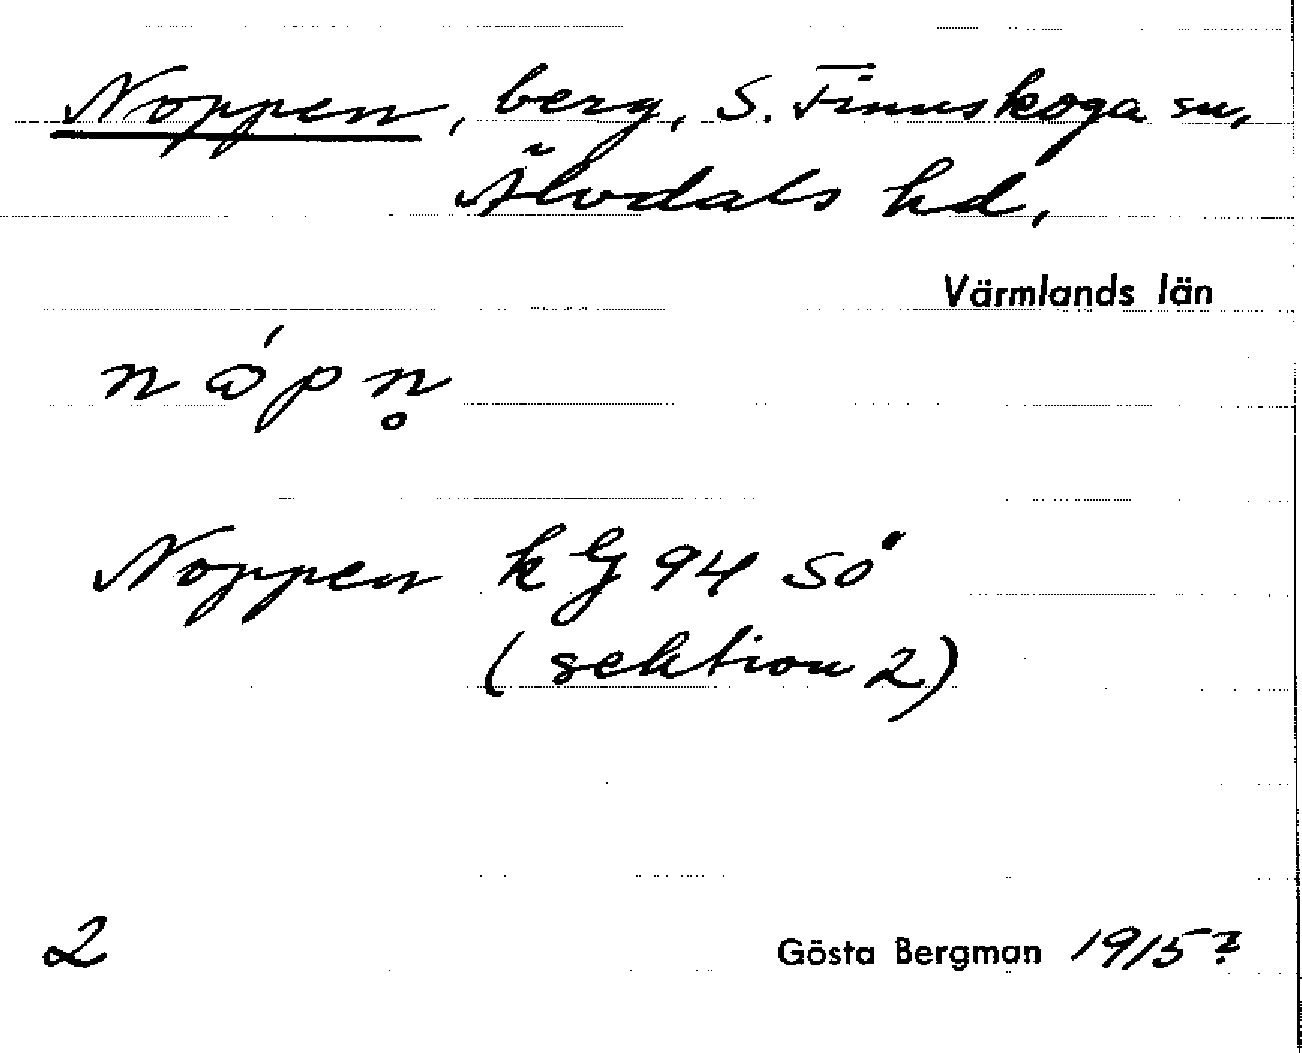 Noppen, berg, S. Finnskoga sn,
Älvdals hd,
Värmlands län
nɷ́pn̥
Noppen kG 94 SÖ
(sektion 2)
2 Gösta Bergman 1915?